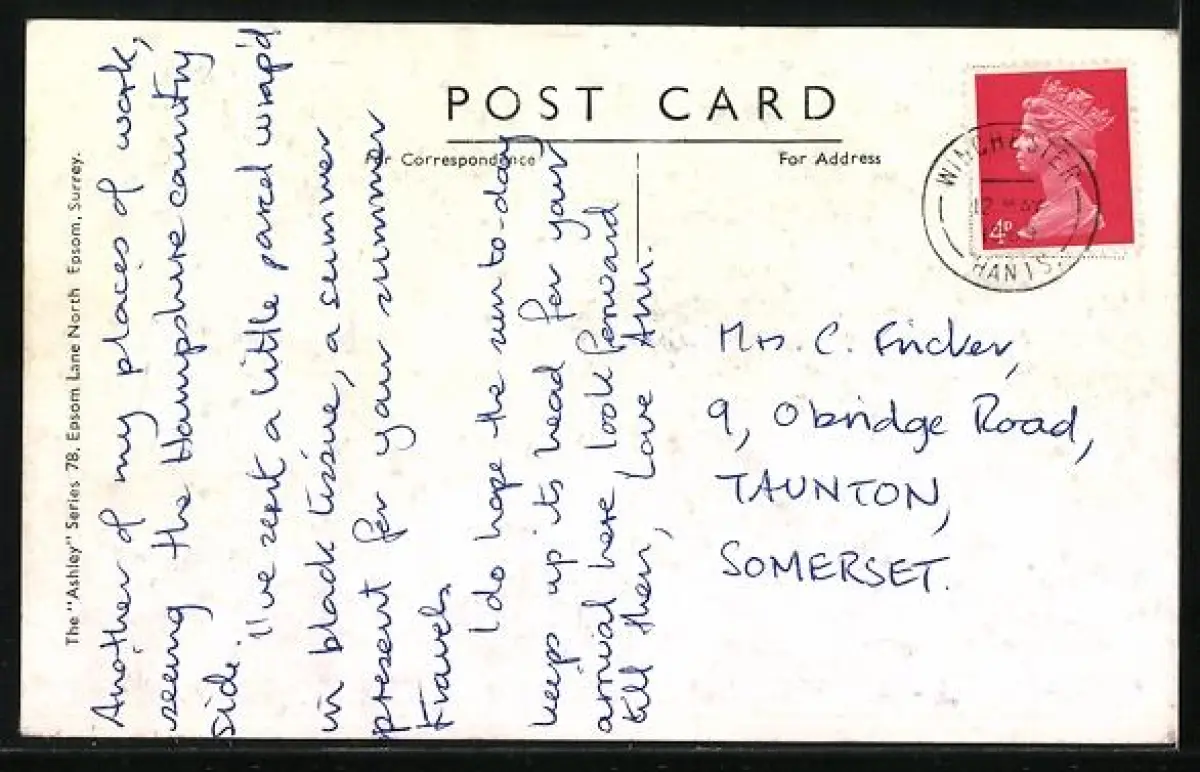 POST CARD
For Correspondence
For Address
The "Ashley" Series 78, Epsom Lane North Epsom, Surrey.
Another of my places of work,
seeing the Hampshire country
side.
I've sent a little parcel wrap'd
in black tissue, a summer
present for your summer
travels.
I do hope the sun to-day
keeps up its head for your
arrival here, look forward
till then, Love Ann.
WINCHESTER
HANTS.
4D
Mrs. C. Fricker,
9, Obridge Road,
TAUNTON,
SOMERSET.